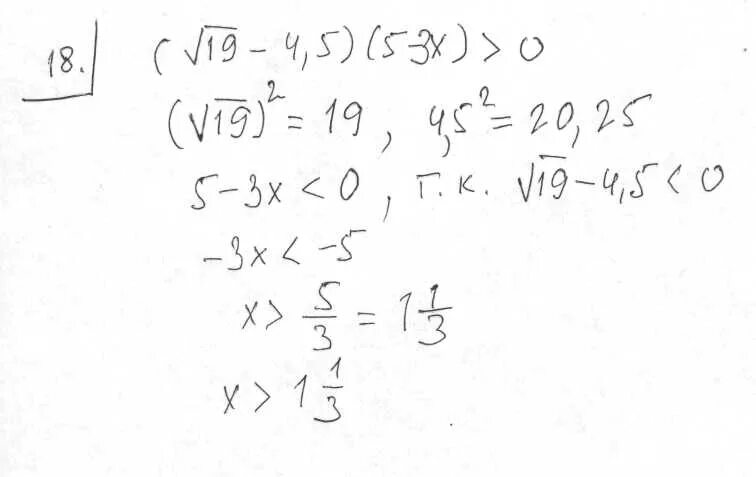 18. (√19 - 4,5)(5-3x) > 0
(√19)² = 19, 4,5² = 20,25
5-3x < 0, т.к. √19-4,5 < 0
-3x < -5
x > 5/3 = 1 1/3
x > 1 1/3